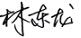 林东龙